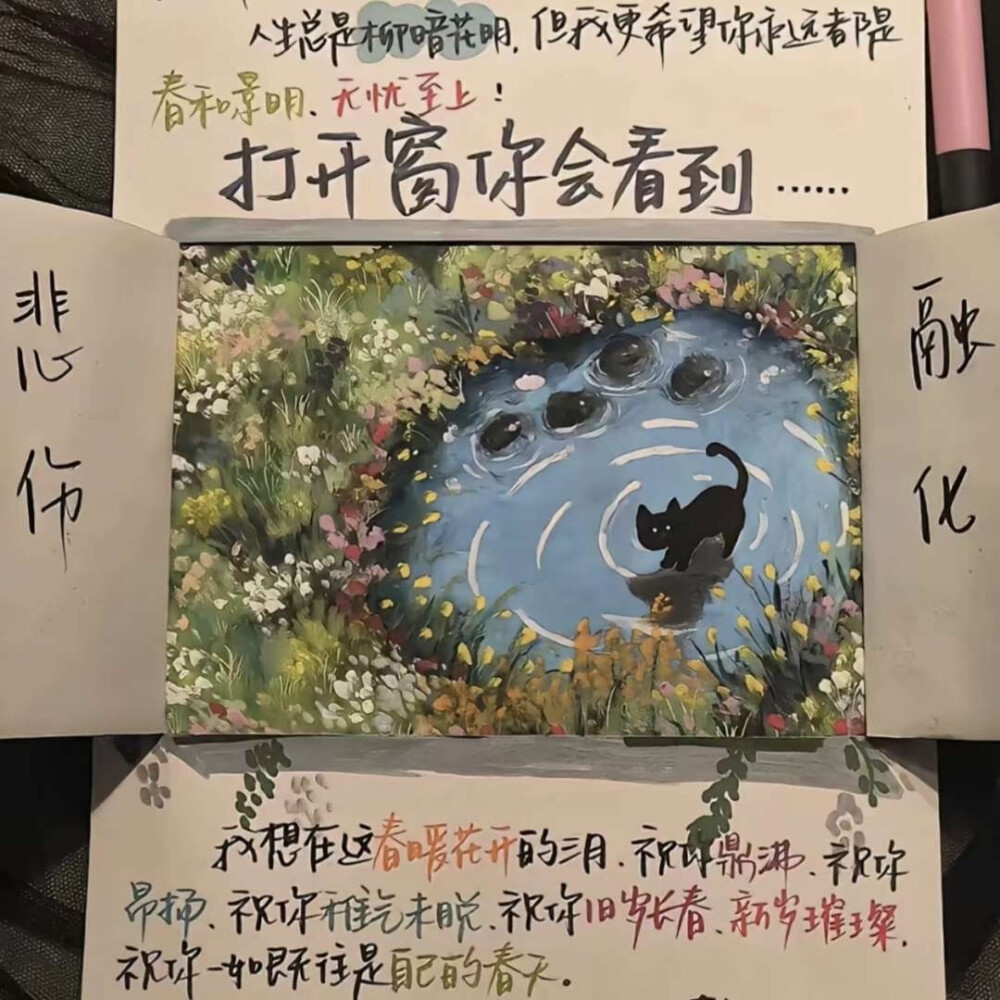 人生总是柳暗花明，但我更希望你永远都是
春和景明、无忧至上！
打开窗你会看到……
悲伤
融化
我想在这春暖花开的三月、祝你鼎沸、祝你
昂扬、祝你稚气未脱、祝你旧岁长春、新岁璀璨，
祝你一如既往是自己的春天。